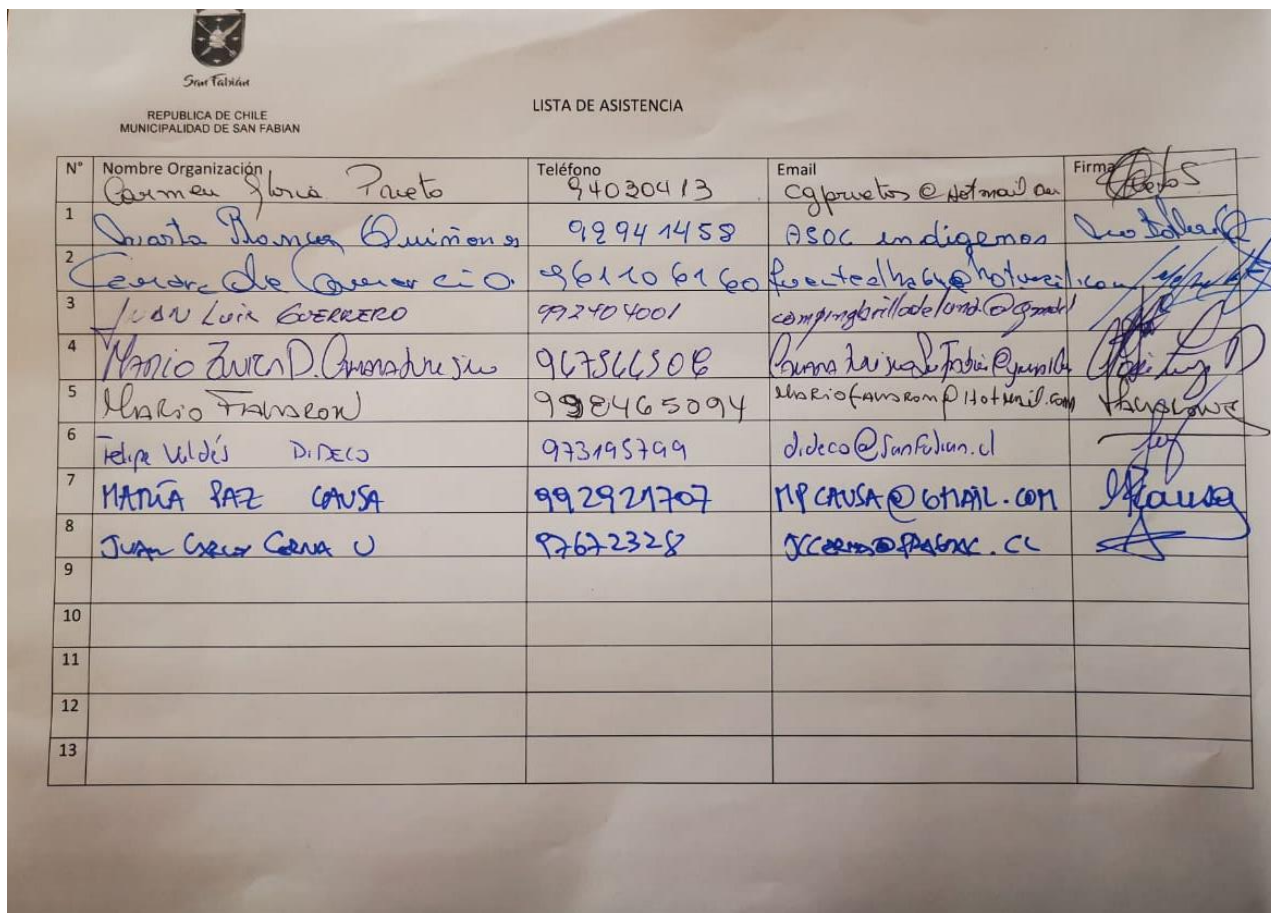 San Fabián
REPUBLICA DE CHILE
MUNICIPALIDAD DE SAN FABIAN
LISTA DE ASISTENCIA
N° Nombre Organización Teléfono Email Firma
Carmen Gloria Prieto 94030413 cgprietos@Hotmail
1 Marta Quiñones 92941458 ASOC indigenas
2 Camara de Comercio. 961106160
3 JUAN LUIS GUERRERO 992404001 compingbrilladeluna@gmail
4 MARIO ZUÑIGA D.
5 MARIO FAVARON 998465094 MARIOFAVARON@Hotmail.com
6 Felipe Valdés DIDECO 973195799 dideco@sanfabian.cl
7 MARÍA PAZ CAUSA 992921707 MPCAUSA@GMAIL.COM MPCausa
8 JUAN CARLOS CERNA U 97672328
9
10
11
12
13